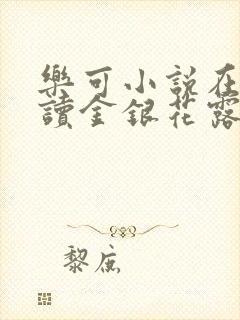 樂可小說在
讀金銀花露
黎底